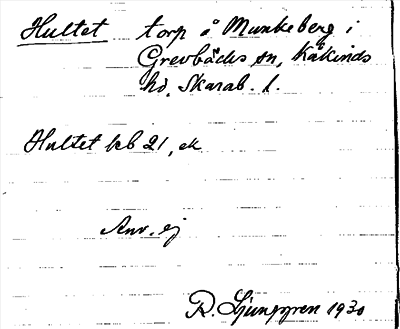 Hultet torp å Munkeberg i
Grevbäcks sn, Kåkinds
hd, Skarab. l.
Hultet kb 21, ek
Anv. ej
R. Ljunggren 1930